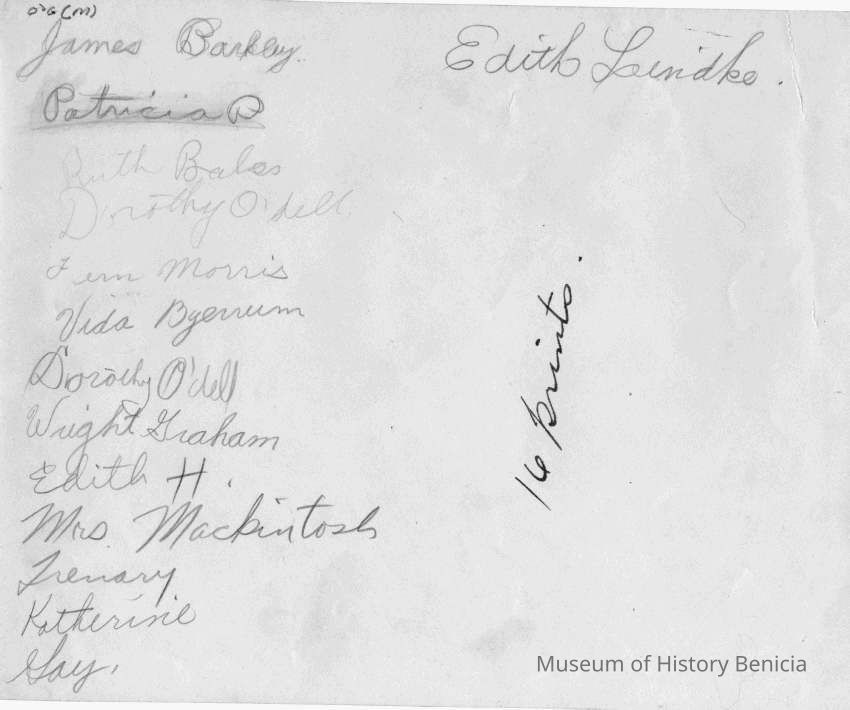 James Barkley.
Patricia P
Ruth Bales
Dorothy O'dell
Fern Morris
Vida Byerrum
Dorothy O'dell
Wright Graham
Edith H.
Mrs. Mackintosh
Trenary
Katherine
Gay.
Edith Leindke.
16 prints.
Museum of History Benicia